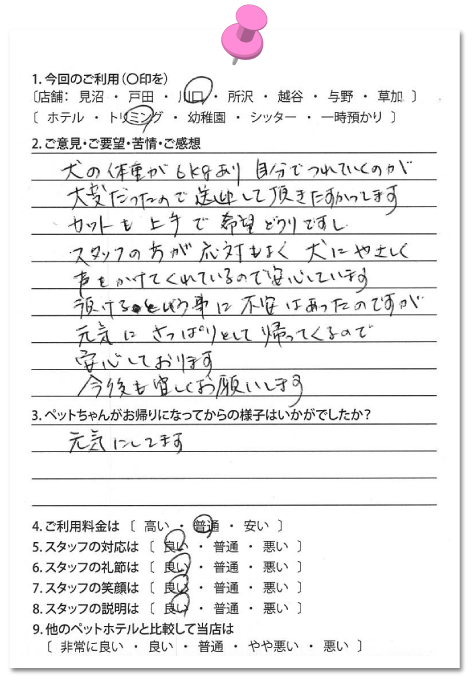 1.今回のご利用(〇印を)
〔店舗： 見沼 ・ 戸田 ・ 川口 ・ 所沢 ・ 越谷 ・ 与野 ・ 草加 〕
〔 ホテル ・ トリミング ・ 幼稚園 ・ シッター ・ 一時預かり 〕
2.ご意見・ご要望・苦情・ご感想
犬の体重が6kgあり 自分でつれていくのが
大変だったので送迎して頂きたすかってます
カットも上手で希望どうりですし
スタッフの方が応対もよく犬にやさしく
声をかけてくれているので安心しています
預けるという事に不安はあったのですが
元気にさっぱりとして帰ってくるので
安心しております
今後も宜しくお願いします
3.ペットちゃんがお帰りになってからの様子はいかがでしたか？
元気にしてます
4.ご利用料金は 〔 高い ・ 普通 ・ 安い 〕
5.スタッフの対応は 〔 良い ・ 普通 ・ 悪い 〕
6.スタッフの礼節は 〔 良い ・ 普通 ・ 悪い 〕
7.スタッフの笑顔は 〔 良い ・ 普通 ・ 悪い 〕
8.スタッフの説明は 〔 良い ・ 普通 ・ 悪い 〕
9.他のペットホテルと比較して当店は
〔 非常に良い ・ 良い ・ 普通 ・ やや悪い ・ 悪い 〕